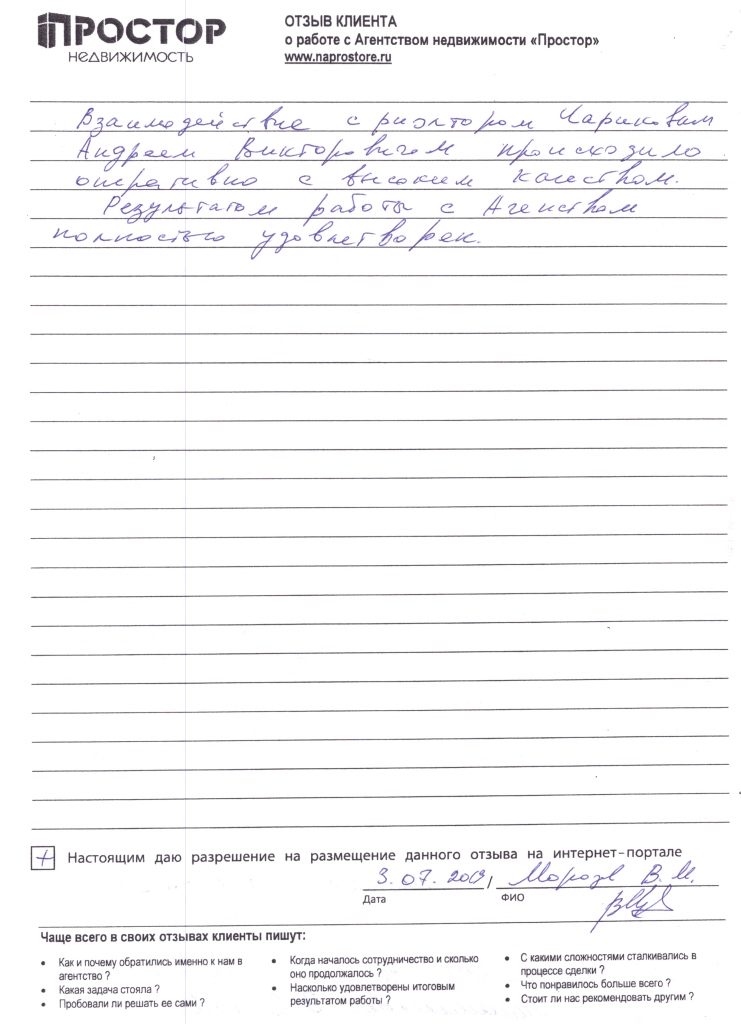 ПРОСТОР
НЕДВИЖИМОСТЬ
ОТЗЫВ КЛИЕНТА
о работе с Агентством недвижимости «Простор»
www.naprostore.ru
Взаимодействие с риэлтором Чариковым
Андреем Викторовичем происходило
оперативно с высоким качеством.
Результатом работы с Агенством
полностью удовлетворен.
+ Настоящим даю разрешение на размещение данного отзыва на интернет-портале
3.07.2019 / Мороз В. М.
Дата ФИО
Чаще всего в своих отзывах клиенты пишут:
• Как и почему обратились именно к нам в
агентство ?
• Какая задача стояла ?
• Пробовали ли решать ее сами ?
• Когда началось сотрудничество и сколько
оно продолжалось ?
• Насколько удовлетворены итоговым
результатом работы ?
• С какими сложностями сталкивались в
процессе сделки ?
• Что понравилось больше всего ?
• Стоит ли нас рекомендовать другим ?